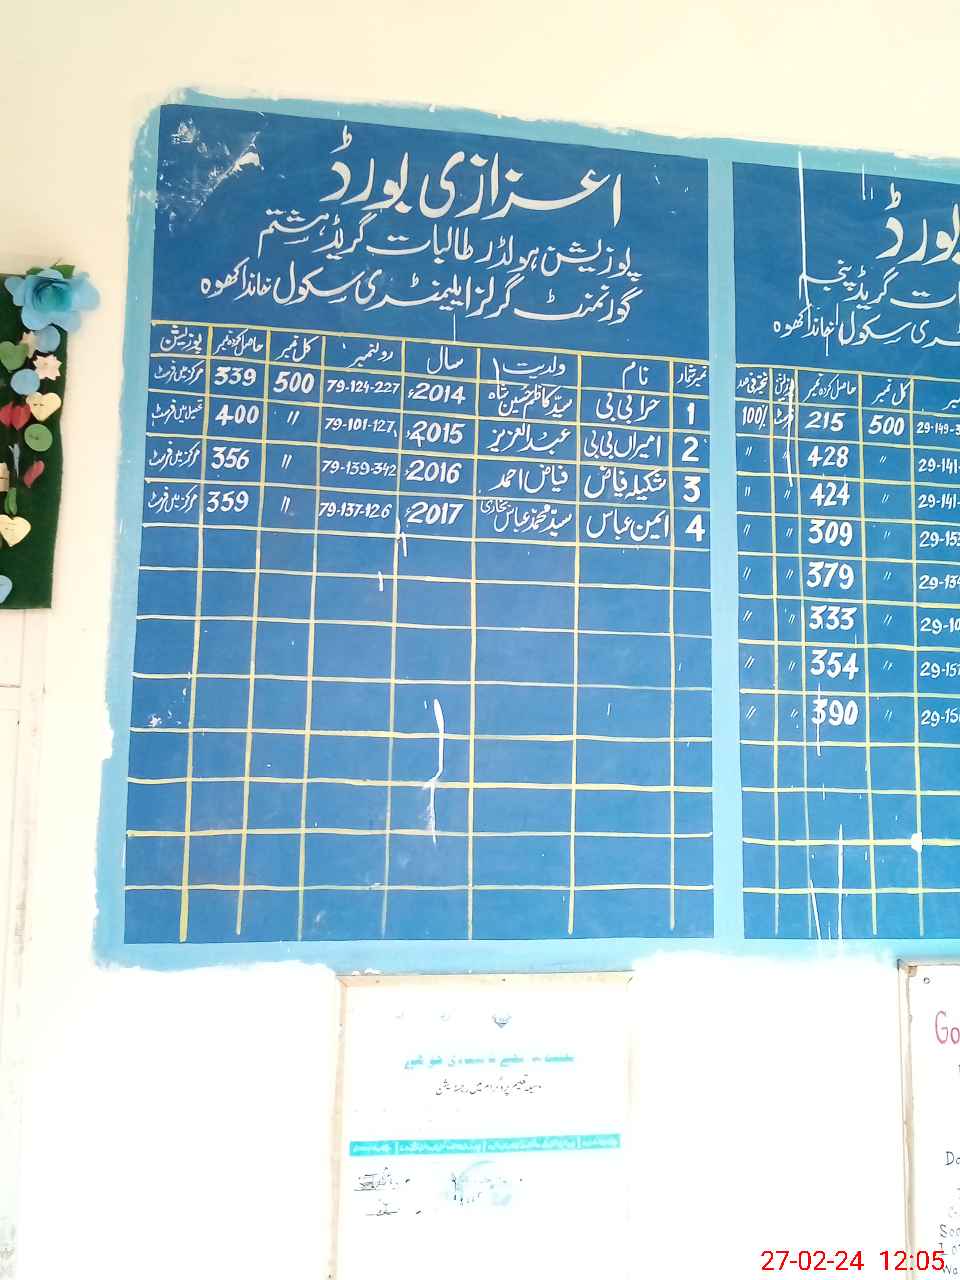 اعزازی بورڈ
پوزیشن ہولڈر طالبات گریڈ ہشتم
گورنمنٹ گرلز ایلیمنٹری سکول خانذاکھوہ
نمبر شمار نام ولدیت سال رولنمبر کل نمبر حاصل کردہ نمبر پوزیشن
1 حرا بی بی سید کاظم حسین شاہ 2014ء 79-124-227 500 339 مرکز میں فرسٹ
2 امیراں بی بی عبدالعزیز 2015ء 79-101-127 〃 400 تحصیل میں فرسٹ
3 شکیلہ فیاض فیاض احمد 2016ء 79-139-342 〃 356 مرکز میں فرسٹ
4 ایمن عباس سید محمد عباس بخاری 2017ء 79-137-126 〃 359 مرکز میں فرسٹ
بورڈ
ت گریڈ پنجم
ٹری سکول خانذاکھوہ
کل نمبر حاصل کردہ نمبر پوزیشن
29-149-3 500 215 فرسٹ 100%
29-141- 〃 428 〃 〃
29-141- 〃 424 〃 〃
29-153 〃 309 〃 〃
29-134 〃 379 〃 〃
29-10 〃 333 〃 〃
29-157 〃 354 〃 〃
29-15 〃 390 〃 〃
Go
Do
27-02-24 12:05